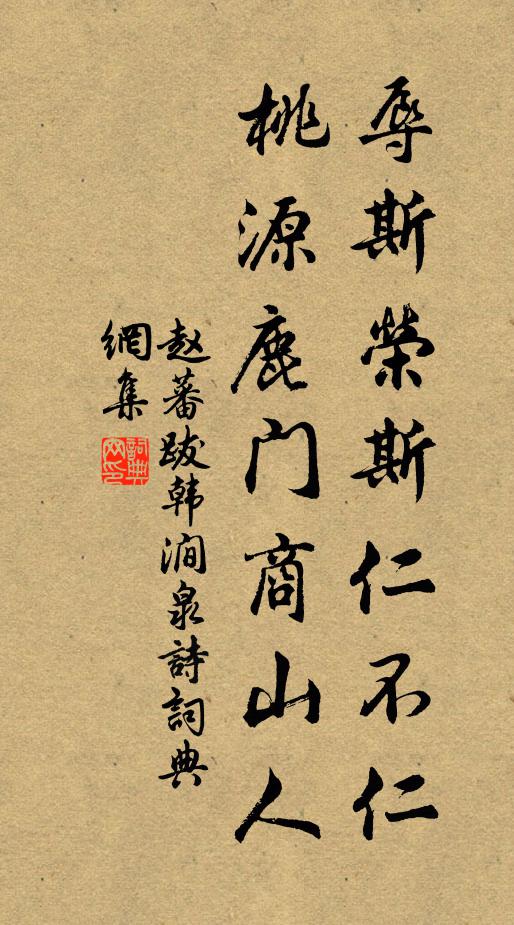 辱斯榮斯仁不仁
桃源鹿門商山人
赵蕃跋韩澗泉詩詞典
網集
詞典
网印